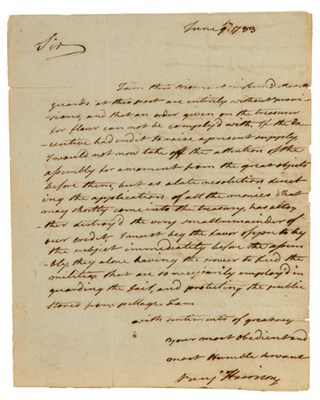 June 9th 1783
Sir
I am this moment inform'd that the
guards at this post are entirely without provi
sions, and that an order given on the treasurer
for flour can not be comply'd with. If the Ex
ecutive had credit to raise a present supply
I would not now take off the attention of the
assembly for a moment from the great objects
before them, but as a late resolution direct
ing the application of all the monies that
may shortly come into the treasury, has altog
ether destroy'd the very small remainder of
our credit. I must beg the favor of you to lay
the subject immediately before the assem
bly, they alone having the power to feed the
militia that are so necessarily employ'd in
guarding the Jail, and protecting the public
stores from pillage. I am
with sentiments of great
your most obedient and
most Humble servant
Benj Harrison